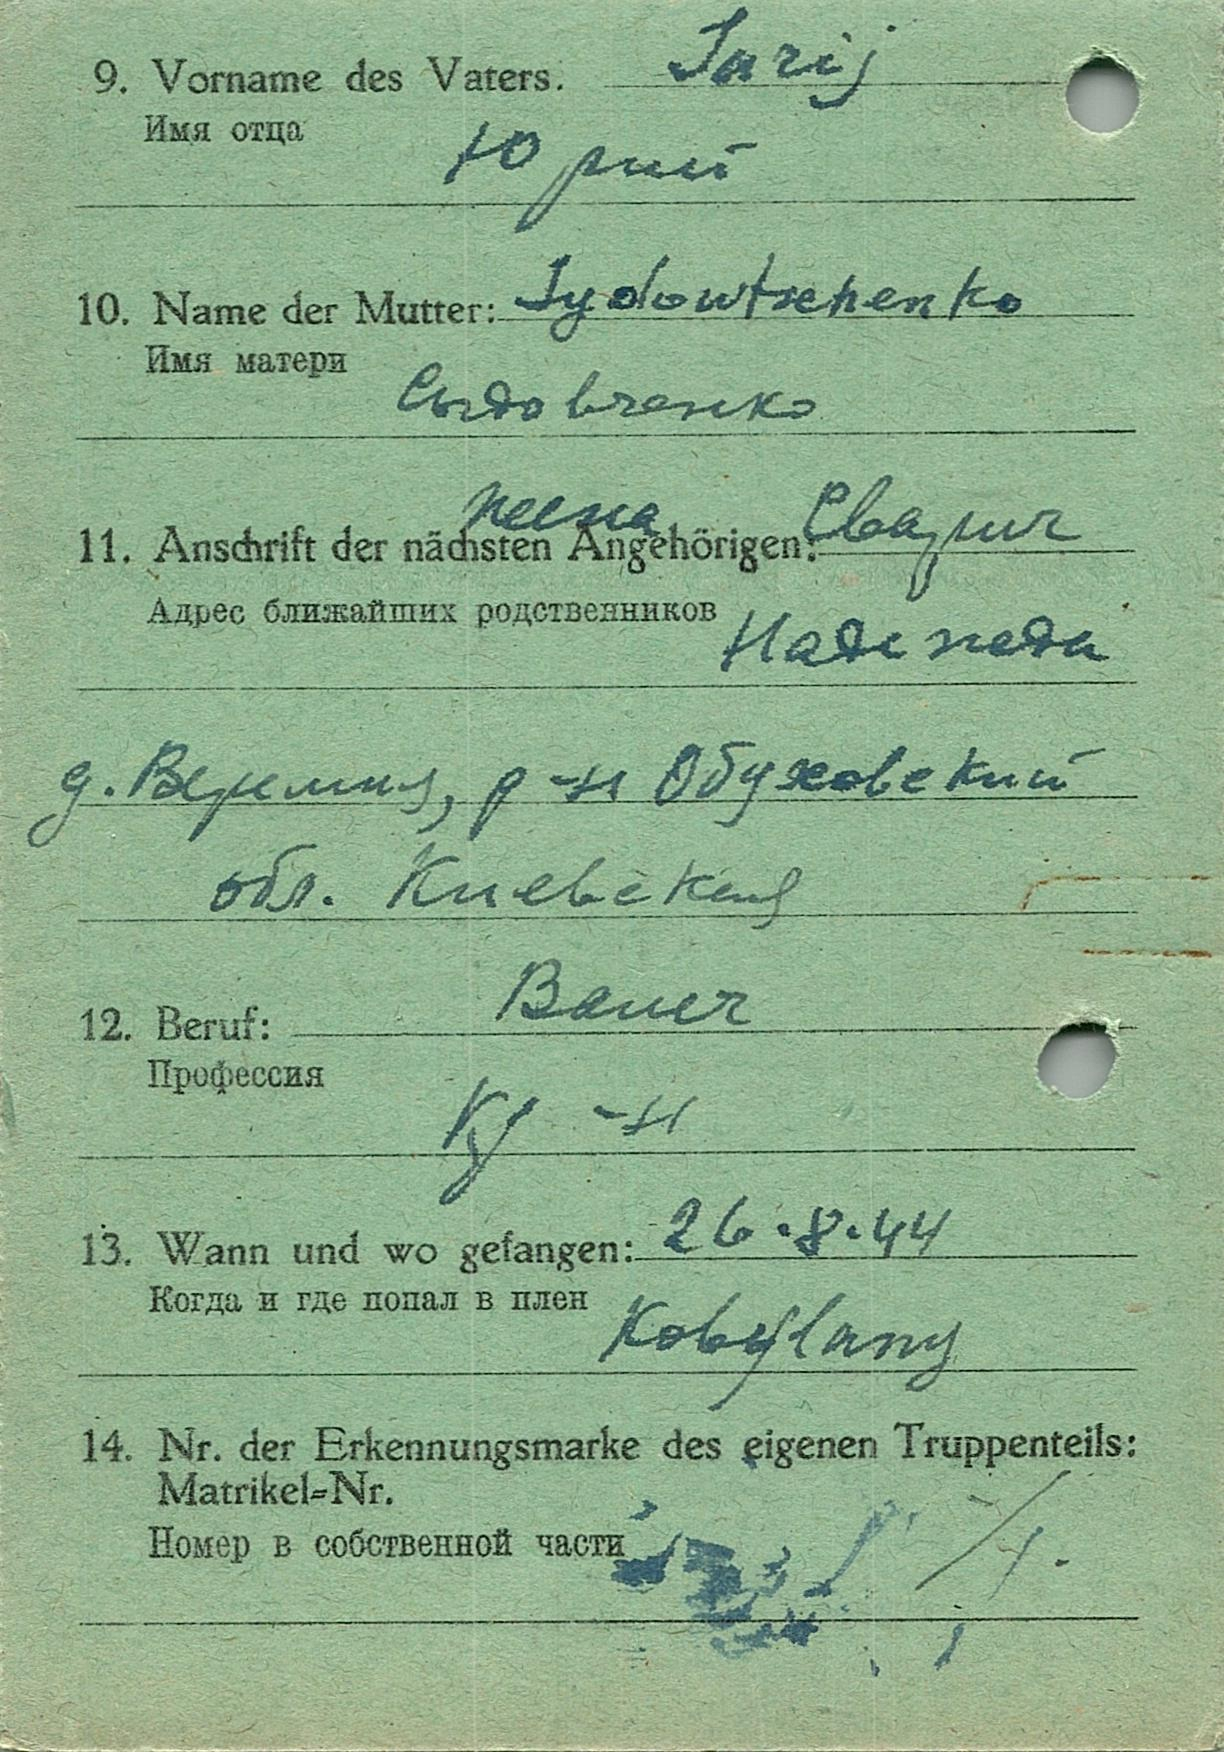 9. Vorname des Vaters. Jurij
Имя отца
Юрий
10. Name der Mutter: Sydowtschenko
Имя матери
Сыдовченко
жена Сварич
11. Anschrift der nächsten Angehörigen:
Адрес ближайших родственников
Надежда
д. Веремия, р-н Обуховский
обл. Киевская
12. Beruf: Bauer
Профессия
13. Wann und wo gefangen: 26.8.44
Когда и где попал в плен
Kobylany
14. Nr. der Erkennungsmarke des eigenen Truppenteils:
Matrikel-Nr.
Номер в собственной части